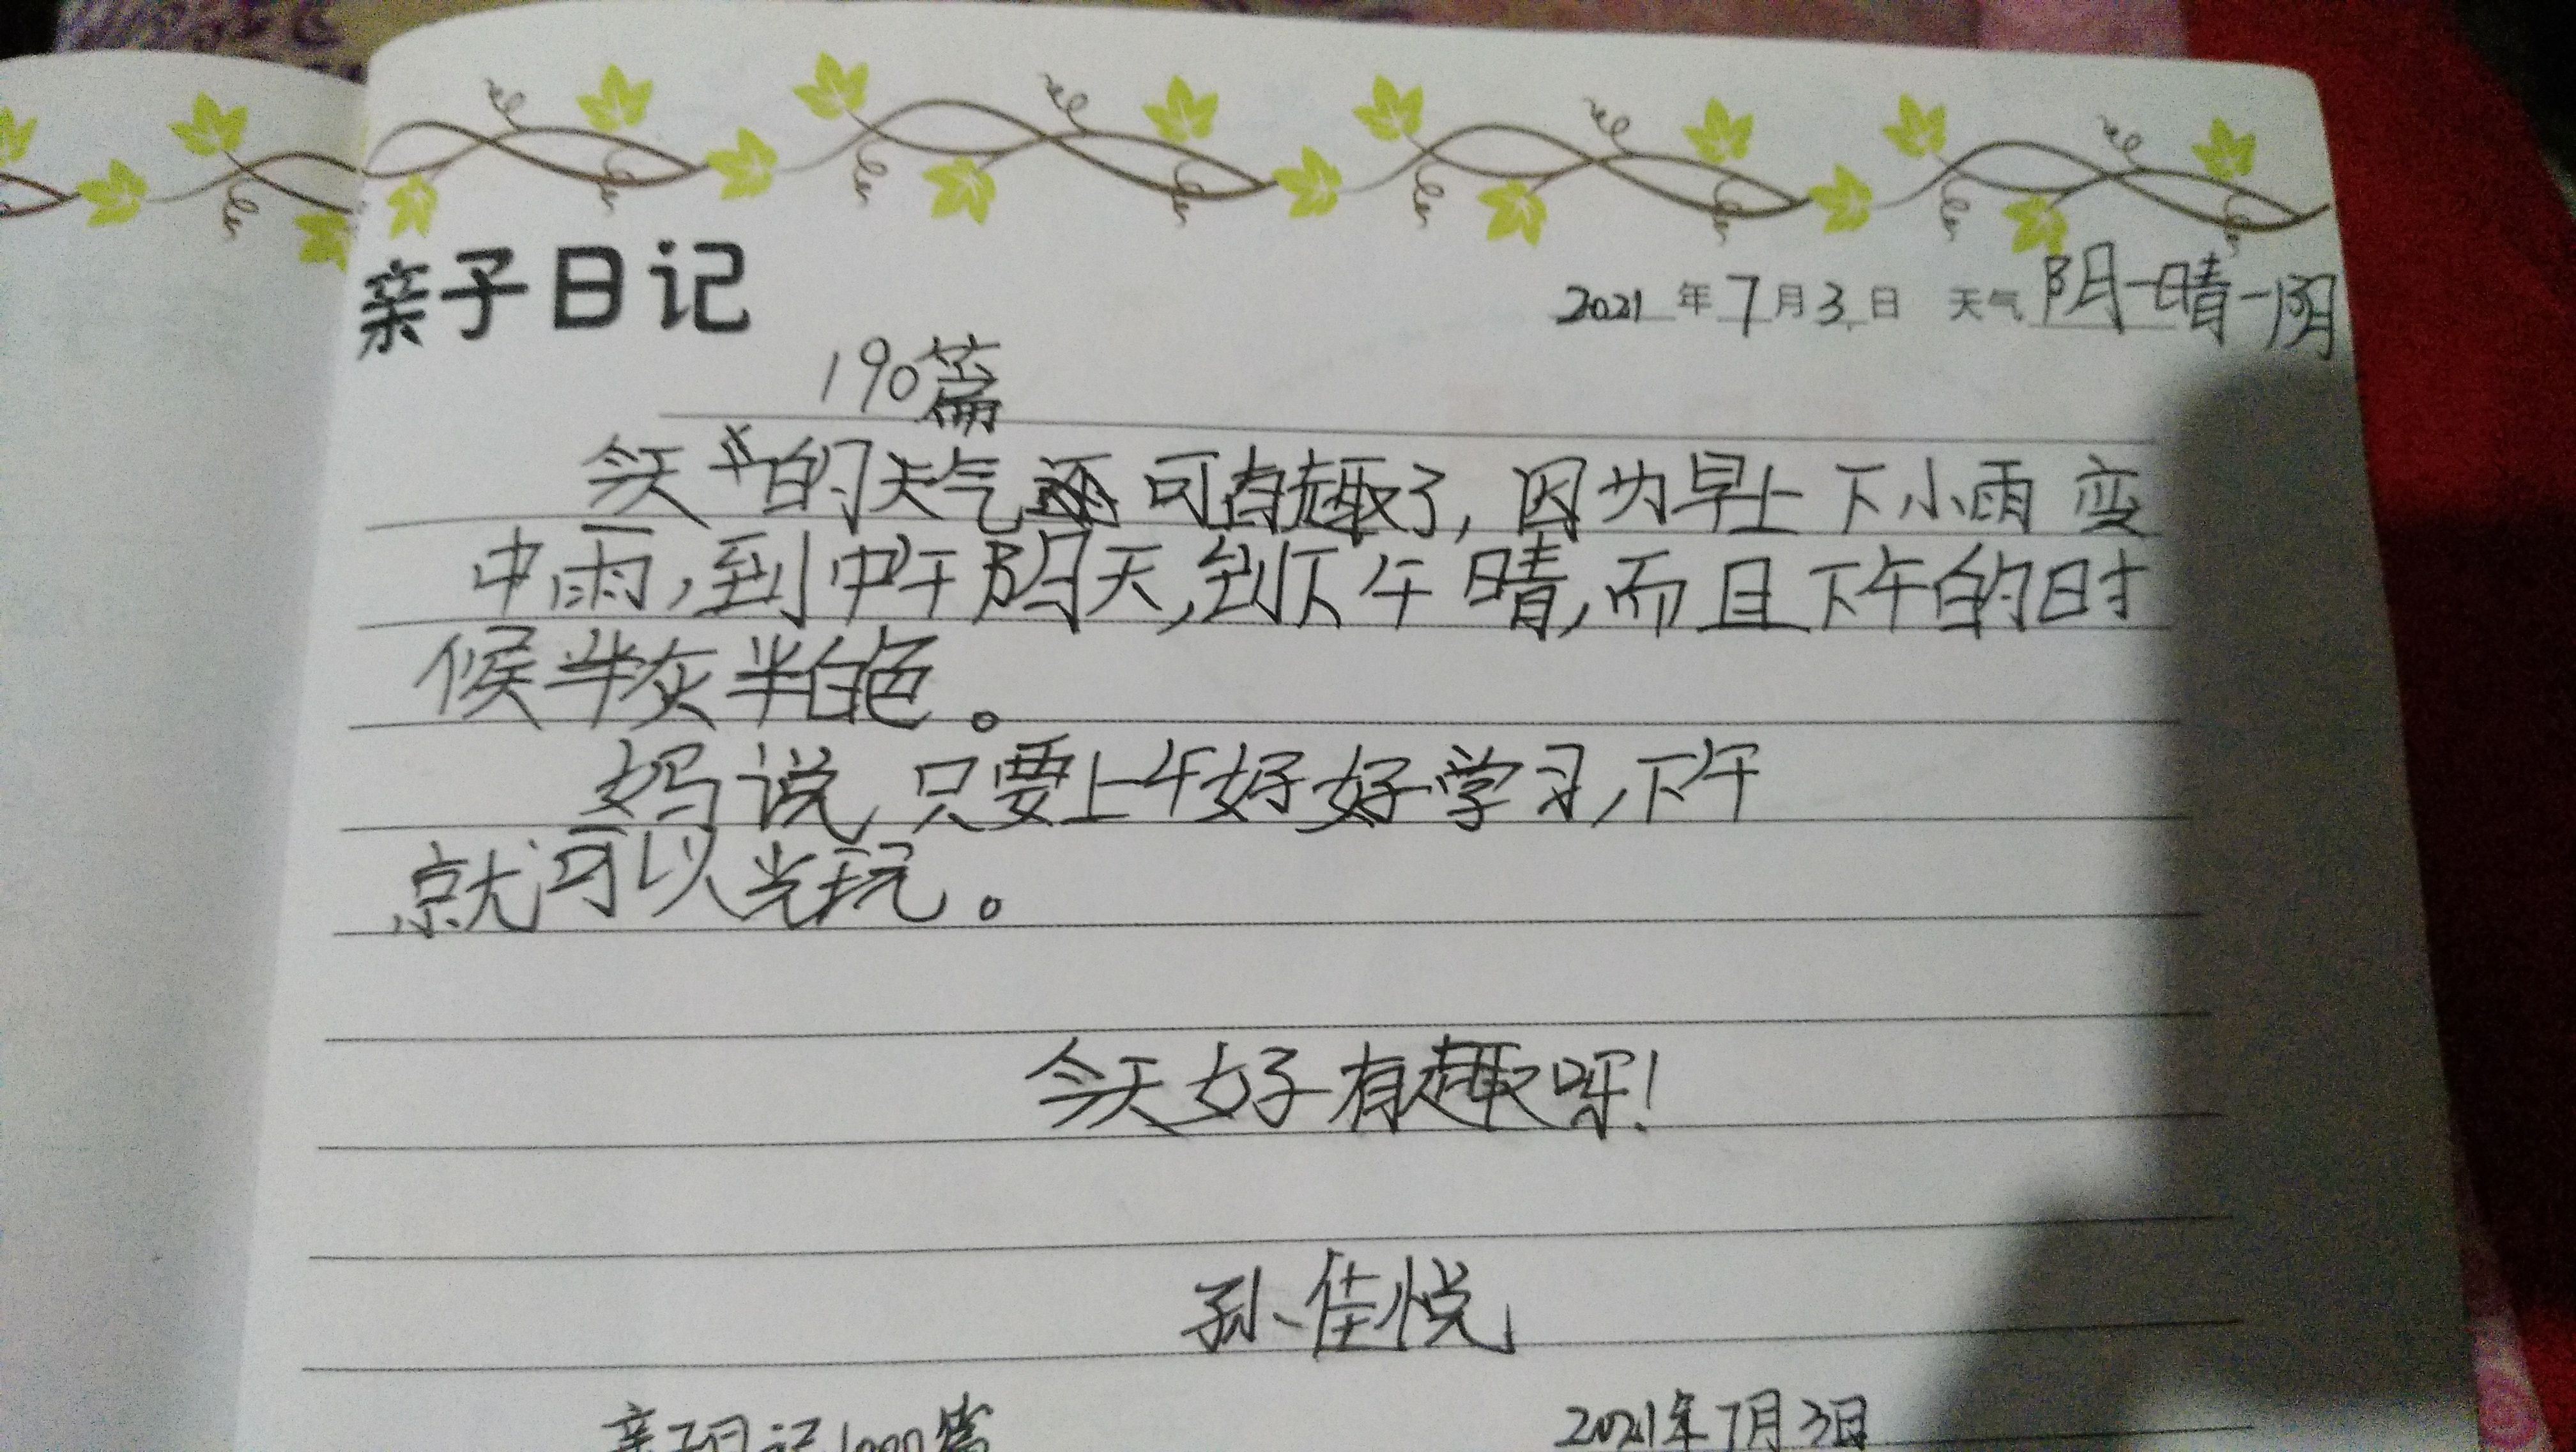 亲子日记
2021年7月3日 天气 阴-晴-阴
190篇
今天的天气可有趣了,因为早上下小雨变
中雨,到中午阴天,到下午晴,而且下午的时
候半灰半白色。
妈说,只要上午好好学习,下午
就可以光玩。
今天好有趣呀!
孙佳悦
亲子日记1000篇
2021年7月3日